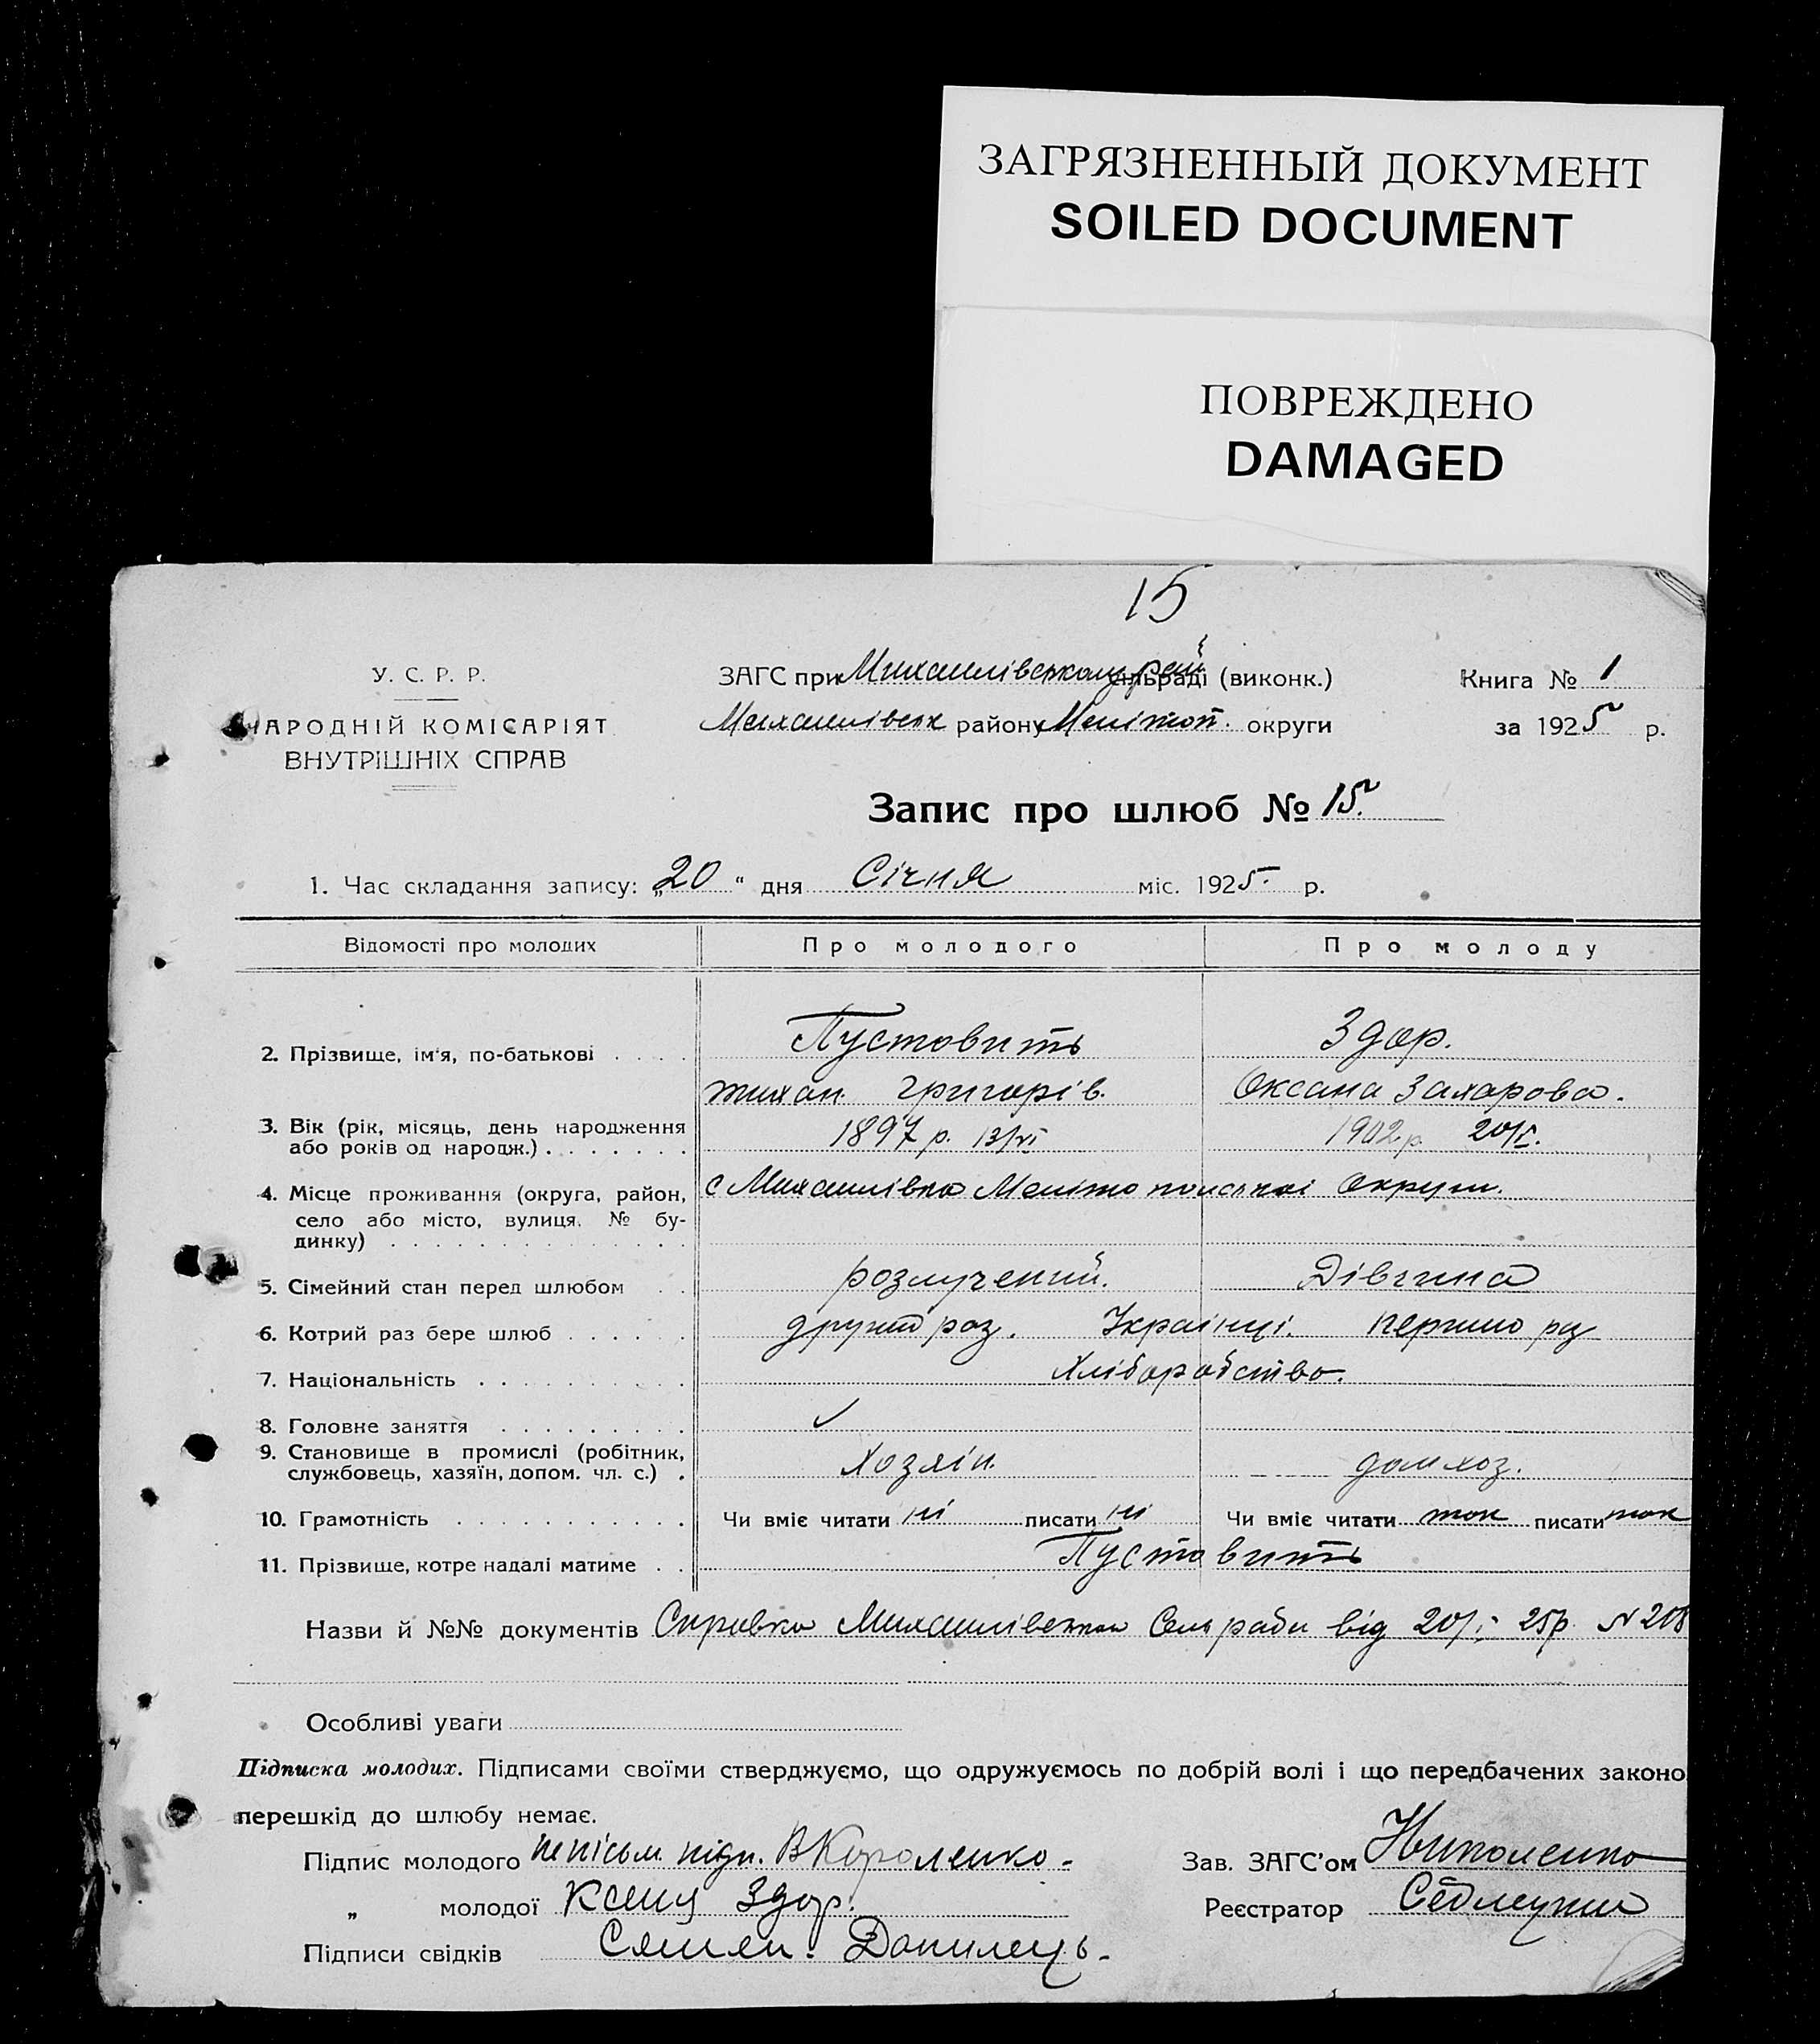 ЗАГРЯЗНЕННЫЙ ДОКУМЕНТ
SOILED DOCUMENT
ПОВРЕЖДЕНО
DAMAGED
15
У. С. Р. Р.
НАРОДНІЙ КОМІСАРІЯТ
ВНУТРІШНІХ СПРАВ
ЗАГС при Михайлівському рай сільраді (виконк.)
Михайлівськ району Меліт оп. округи
Книга № 1
за 1925 р.
Запис про шлюб № 15.
1. Час складання запису: „20 “ дня Січня міс. 1925. р.
Відомості про молодих Про молодого Про молоду
2. Прізвище, ім'я, по-батькові Пустовить Здор.
тихан Григорів. Оксана Захарова.
3. Вік (рік, місяць, день народження 1897 р. 13/VI 1902 р. 20/I.
або років од народж.)
4. Місце проживання (округа, район, с Михайлівка Мелітопольскі округи.
село або місто, вулиця, № бу-
динку)
5. Сімейний стан перед шлюбом розлучений. Дівчина
6. Котрий раз бере шлюб другий раз. Українці. першо раз
7. Національність Хліборобство.
8. Головне заняття ✓
9. Становище в промислі (робітник, Хозяін. дом хоз.
службовець, хазяїн, допом. чл. с.)
10. Грамотність Чи вміє читати ні писати ні Чи вміє читати так писати так
11. Прізвище, котре надалі матиме Пустовить
Назви й №№ документів Справка Михайлівської Сельради від 20/I 25р. № 208
Особливі уваги
Підписка молодих. Підписами своїми стверджуємо, що одружуємось по добрій волі і що передбачених законо
перешкід до шлюбу немає.
Підпис молодого непісьм. підп. В Короленко
Зав. ЗАГС'ом
„ молодої Ксеня Здор.
Реєстратор
Підписи свідків Данилець